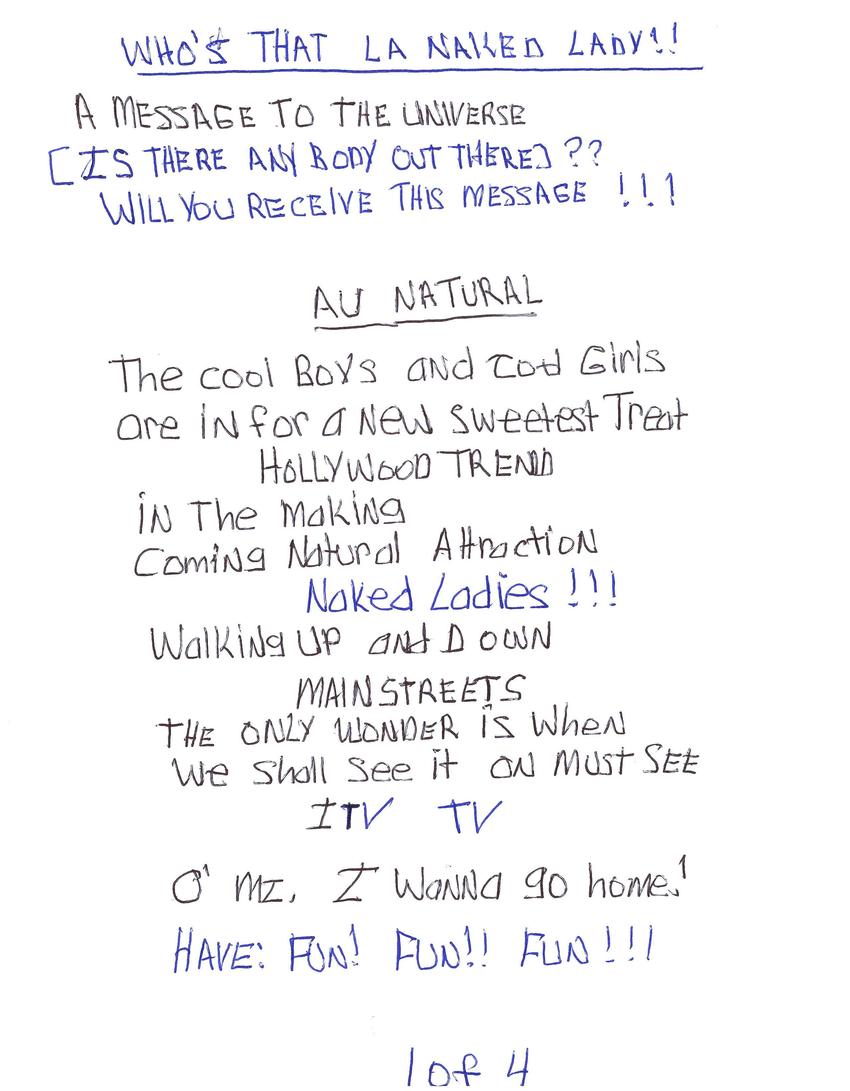 WHO'S THAT LA NAKED LADY!!
A MESSAGE TO THE UNIVERSE
[IS THERE ANY BODY OUT THERE] ??
WILL YOU RECEIVE THIS MESSAGE !!!
AU NATURAL
The cool BOYS and Girls
are iN for a New sweetest Treat
HOLLYWOOD TREND
iN The Making
Coming Natural Attraction
Naked Ladies !!!
Walking UP and DOWN
MAINSTREETS
THE ONLY WONDER is When
We Shall See it ON MUST SEE
ITV TV
O' MI, I WaNNa go home.!
HAVE: FUN! FUN!! FUN!!!
1 of 4